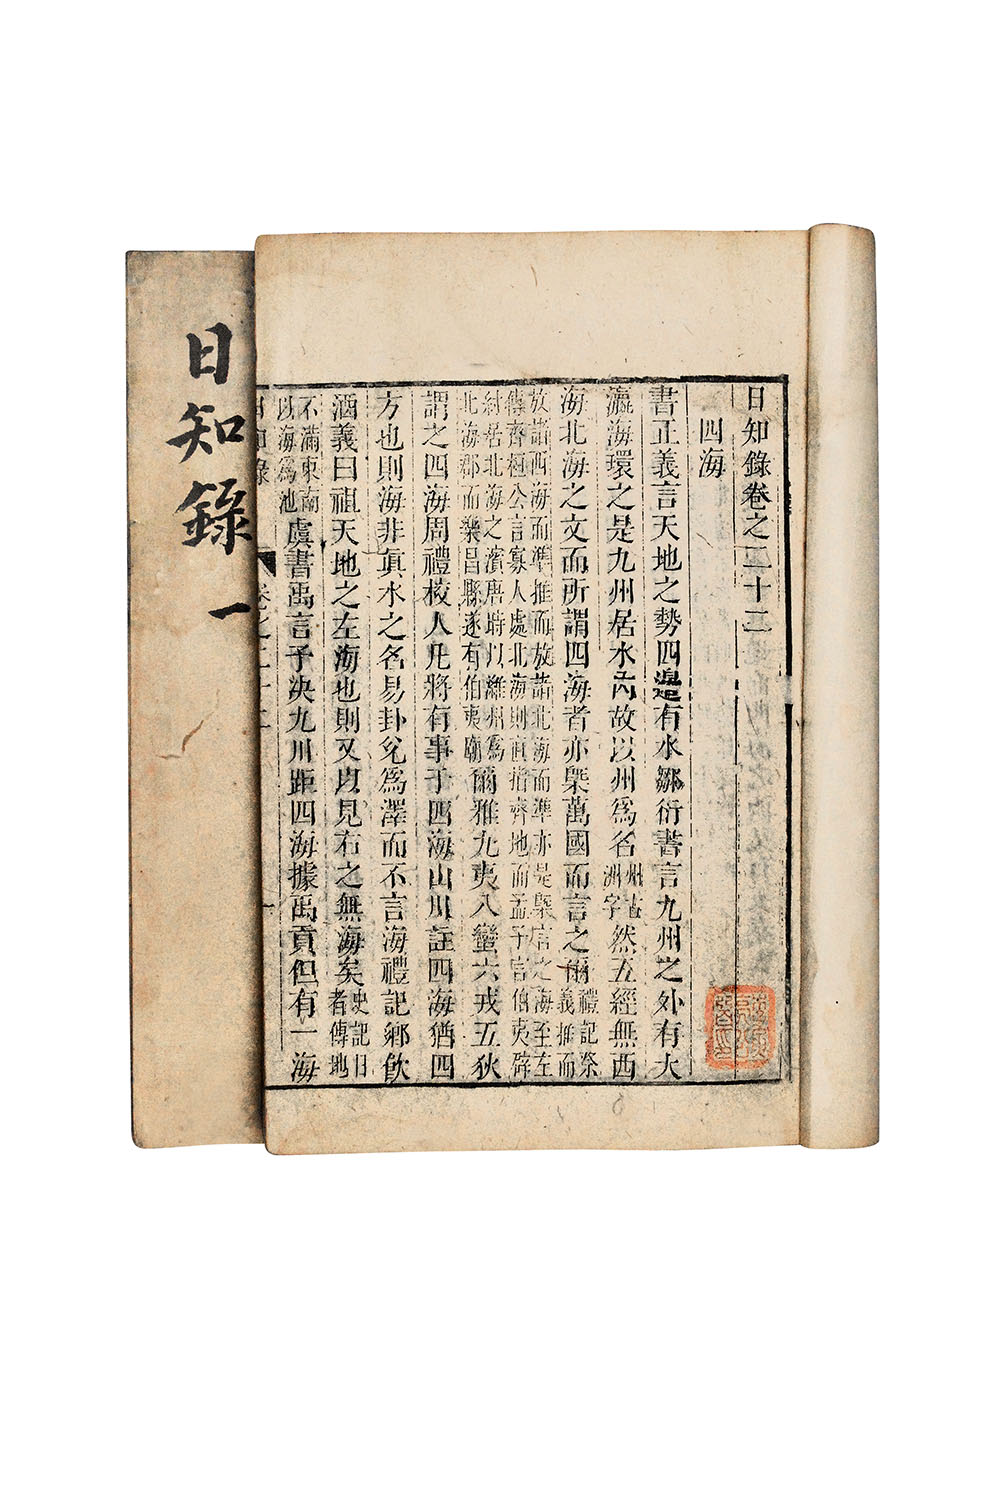 日知錄卷之二十二
四海
書正義言天地之勢四邉有水鄒衍書言九州之外有大
瀛海環之是九州居水內故以州爲名州古洲字然五經無西
海北海之文而所謂四海者亦槩萬國而言之爾禮記祭義推而
放諸西海而準推而放諸北海而準亦是槩言之海至左
傳齊桓公言寡人處北海則直指齊地而孟子言伯夷辟
紂居北海之濱唐時以濰州爲
北海郡而樂昌縣遂有伯夷廟
爾雅九夷八蠻六戎五狄
謂之四海周禮校人凡將有事于四海山川註四海猶四
方也則海非眞水之名易卦兌爲澤而不言海禮記鄉飲
酒義曰祖天地之左海也則又以見右之無海矣史記日者傳地
不滿東南以海爲池虞書禹言予決九川距四海據禹貢但有一海
日知錄 卷之二十二 一
日知錄 一